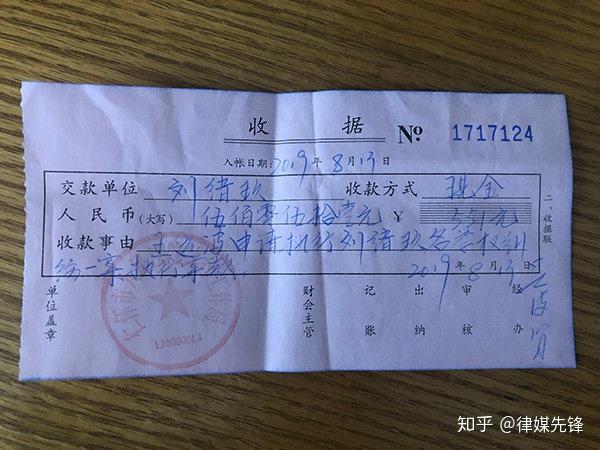 收 据 № 1717124
入帐日期:2019年8月13日
交款单位 刘绪玖 收款方式 现金
人民币(大写) 伍佰零伍拾壹元 ¥ 551元
收款事由 王 申请执行刘绪玖名誉权纠
纷一案执行案款。 2019年8月13
二、收据联
单位盖章 财会主管 记账 出纳 审核 经办
130000013
知乎 @律媒先锋